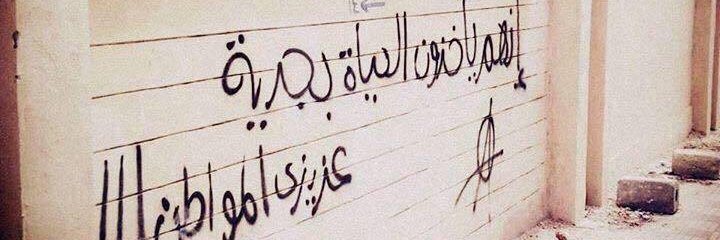 إنهم يأخذون الحياة بجدية
عزيزى المواطن !!!